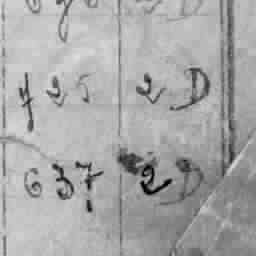 725 2 D
637 2 D